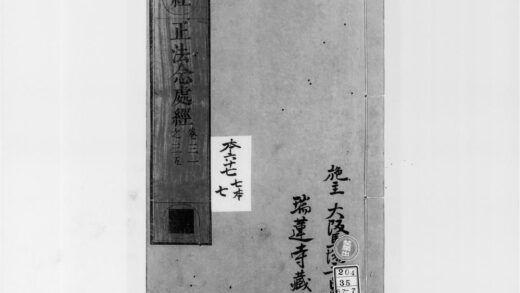 正法念處經
卷三一
之三五
本六十七
七本
七
施主 大阪
瑞蓮寺藏
204
35